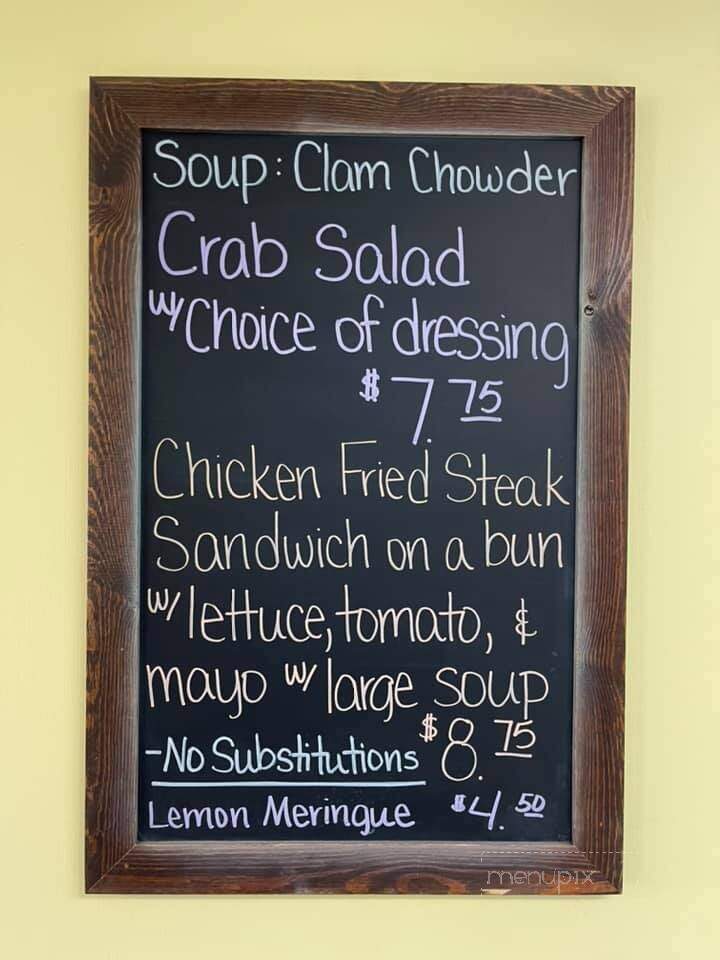 Soup: Clam Chowder
Crab Salad
w/ Choice of dressing
$7.75
Chicken Fried Steak
Sandwich on a bun
w/ lettuce, tomato, &
mayo w/ large soup
$8.75
-No Substitutions
Lemon Meringue $4.50
menupix